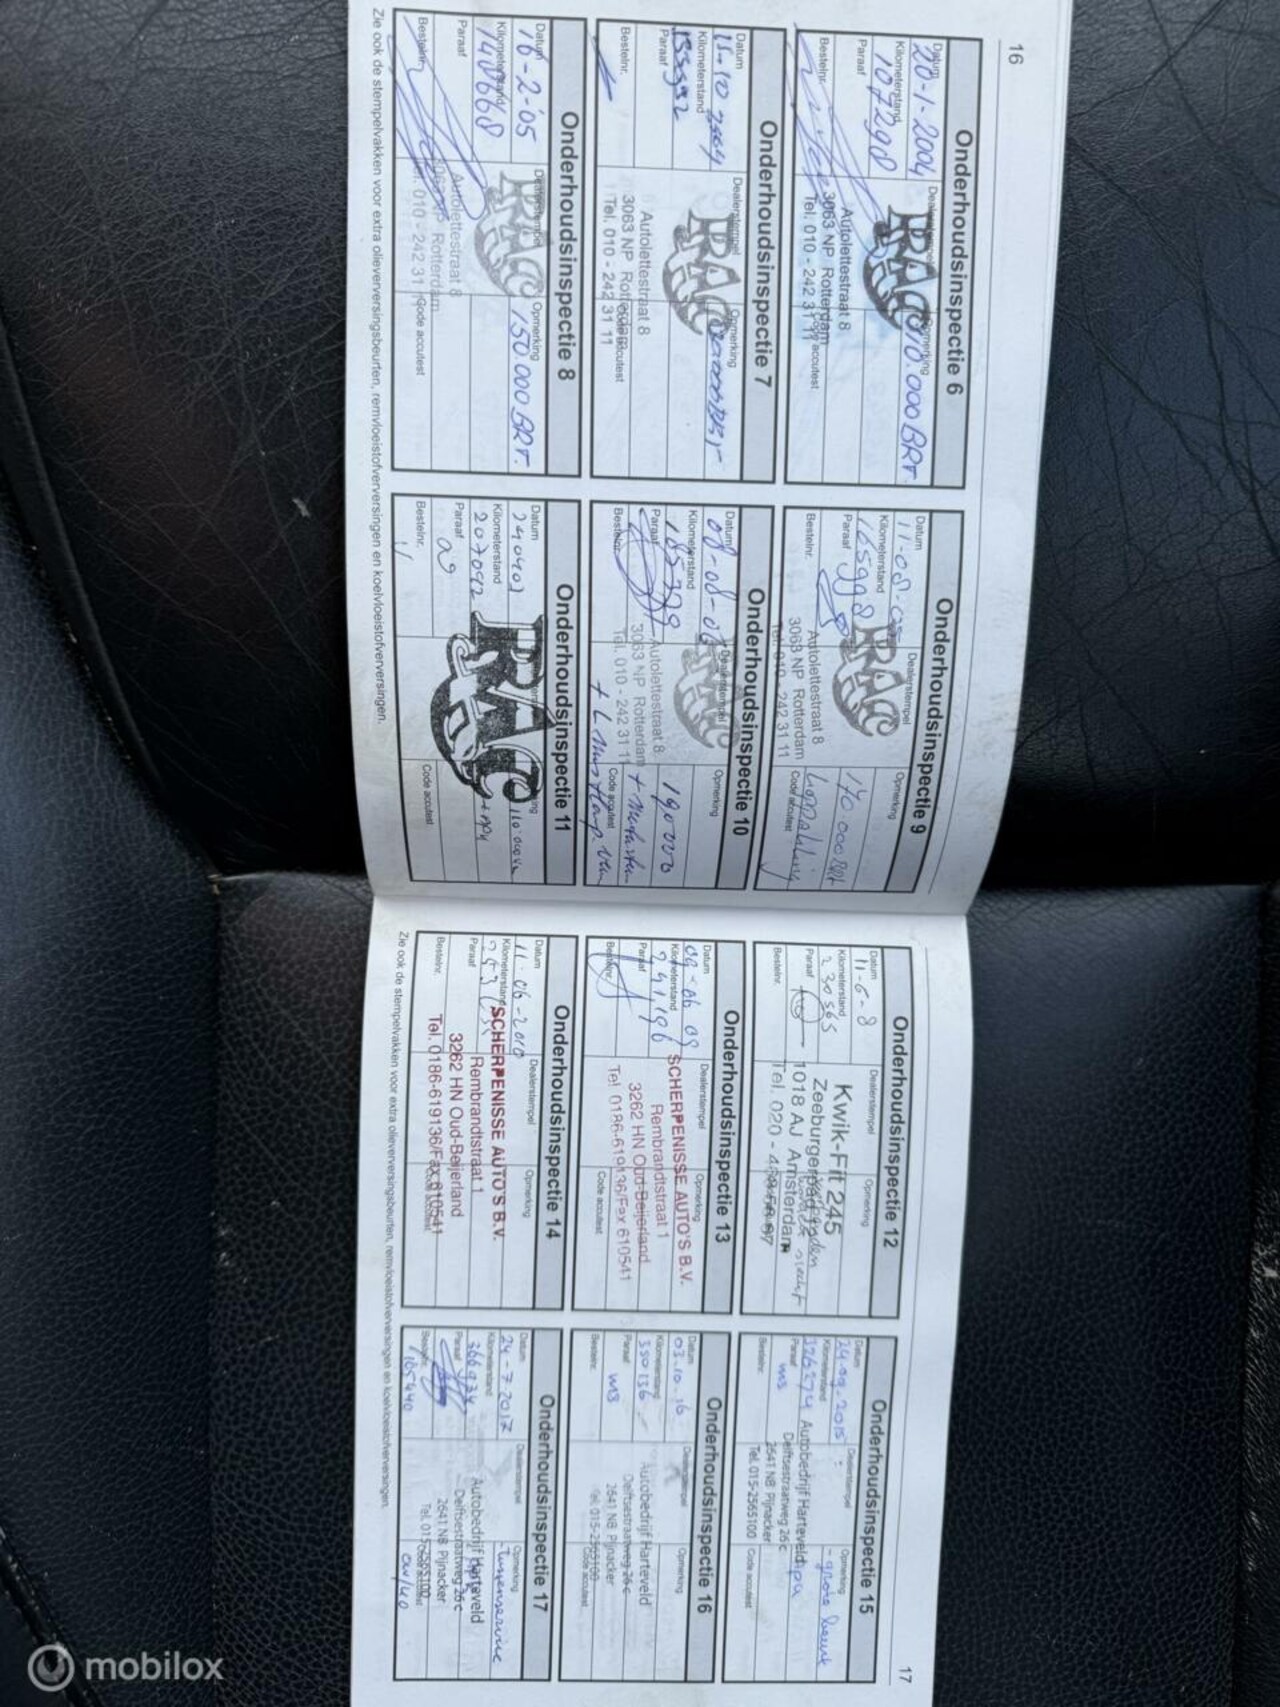 16
Onderhoudsinspectie 6
Datum
20-1-2004
Kilometerstand
107298
Paraaf
Bestelnr.
Dealerstempel
RAC
Autolettestraat 8
3063 NP Rotterdam
Tel. 010 - 242 31 11
Opmerking
Code accutest
Onderhoudsinspectie 7
Datum
Kilometerstand
Paraaf
Bestelnr.
Dealerstempel
RAC
Autolettestraat 8
3063 NP Rotterdam
Tel. 010 - 242 31 11
Opmerking
Code accutest
Onderhoudsinspectie 8
Datum
16-2-'05
Kilometerstand
148668
Paraaf
Bestelnr.
Dealerstempel
RAC
Autolettestraat 8
3063 NP Rotterdam
Tel. 010 - 242 31 11
Opmerking
150.000 BRT.
Code accutest
Onderhoudsinspectie 9
Datum
11-08-05
Kilometerstand
165998
Paraaf
Bestelnr.
Dealerstempel
RAC
Autolettestraat 8
3063 NP Rotterdam
Tel. 010 - 242 31 11
Opmerking
170.000
Code accutest
Onderhoudsinspectie 10
Datum
08-08-06
Kilometerstand
Paraaf
Bestelnr.
Dealerstempel
RAC
Autolettestraat 8
3063 NP Rotterdam
Tel. 010 - 242 31 11
Opmerking
190000
Code accutest
Onderhoudsinspectie 11
Datum
240407
Kilometerstand
207092
Paraaf
Bestelnr.
RAC
Code accutest
Zie ook de stempelvakken voor extra olieverversingsbeurten, remvloeistofverversingen en koelvloeistofverversingen.
17
Onderhoudsinspectie 12
Datum
11-6-8
Kilometerstand
230565
Paraaf
Bestelnr.
Dealerstempel
Kwik-Fit 245
1018 AJ Amsterdam
Opmerking
Onderhoudsinspectie 13
Datum
09-06 09
Kilometerstand
241,196
Paraaf
Bestelnr.
Dealerstempel
SCHERPENISSE AUTO'S B.V.
Rembrandtstraat 1
3262 HN Oud-Beijerland
Tel. 0186-619136/Fax 610541
Opmerking
Code accutest
Onderhoudsinspectie 14
Datum
11-06-2010
Kilometerstand
Paraaf
Bestelnr.
Dealerstempel
SCHERPENISSE AUTO'S B.V.
Rembrandtstraat 1
3262 HN Oud-Beijerland
Tel. 0186-619136/Fax 610541
Opmerking
Onderhoudsinspectie 15
Datum
29.09.2015
Kilometerstand
326274
Paraaf
Bestelnr.
Dealerstempel
Autobedrijf Harteveld
Delftsestraatweg 26c
2641 NB Pijnacker
Tel. 015-2565100
Opmerking
- grote beurt
Code accutest
Onderhoudsinspectie 16
Datum
03.10.16
Kilometerstand
350136
Paraaf
Bestelnr.
Dealerstempel
Autobedrijf Harteveld
Delftsestraatweg 26c
2641 NB Pijnacker
Tel. 015-2565100
Opmerking
Code accutest
Onderhoudsinspectie 17
Datum
24-7-2017
Kilometerstand
366934
Paraaf
Bestelnr.
Dealerstempel
Autobedrijf Harteveld
Delftsestraatweg 26c
2641 NB Pijnacker
Tel. 015-2565100
Opmerking
- Tussenservice
Zie ook de stempelvakken voor extra olieverversingsbeurten, remvloeistofverversingen en koelvloeistofverversingen.
mobilox